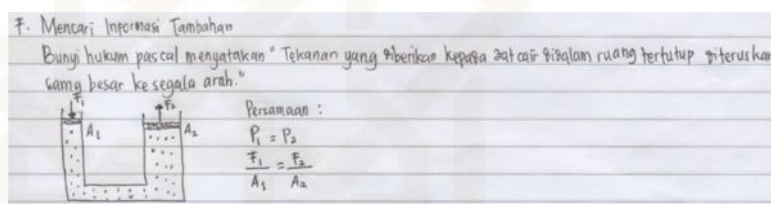 7. Mencari Informasi Tambahan
Bunyi hukum pascal menyatakan " Tekanan yang diberikan kepada zat cair didalam ruang tertutup diteruskan
sama besar ke segala arah."
F₁ F₂
A₁ A₂
Persamaan :
P₁ = P₂
F₁ = F₂
A₁ A₂